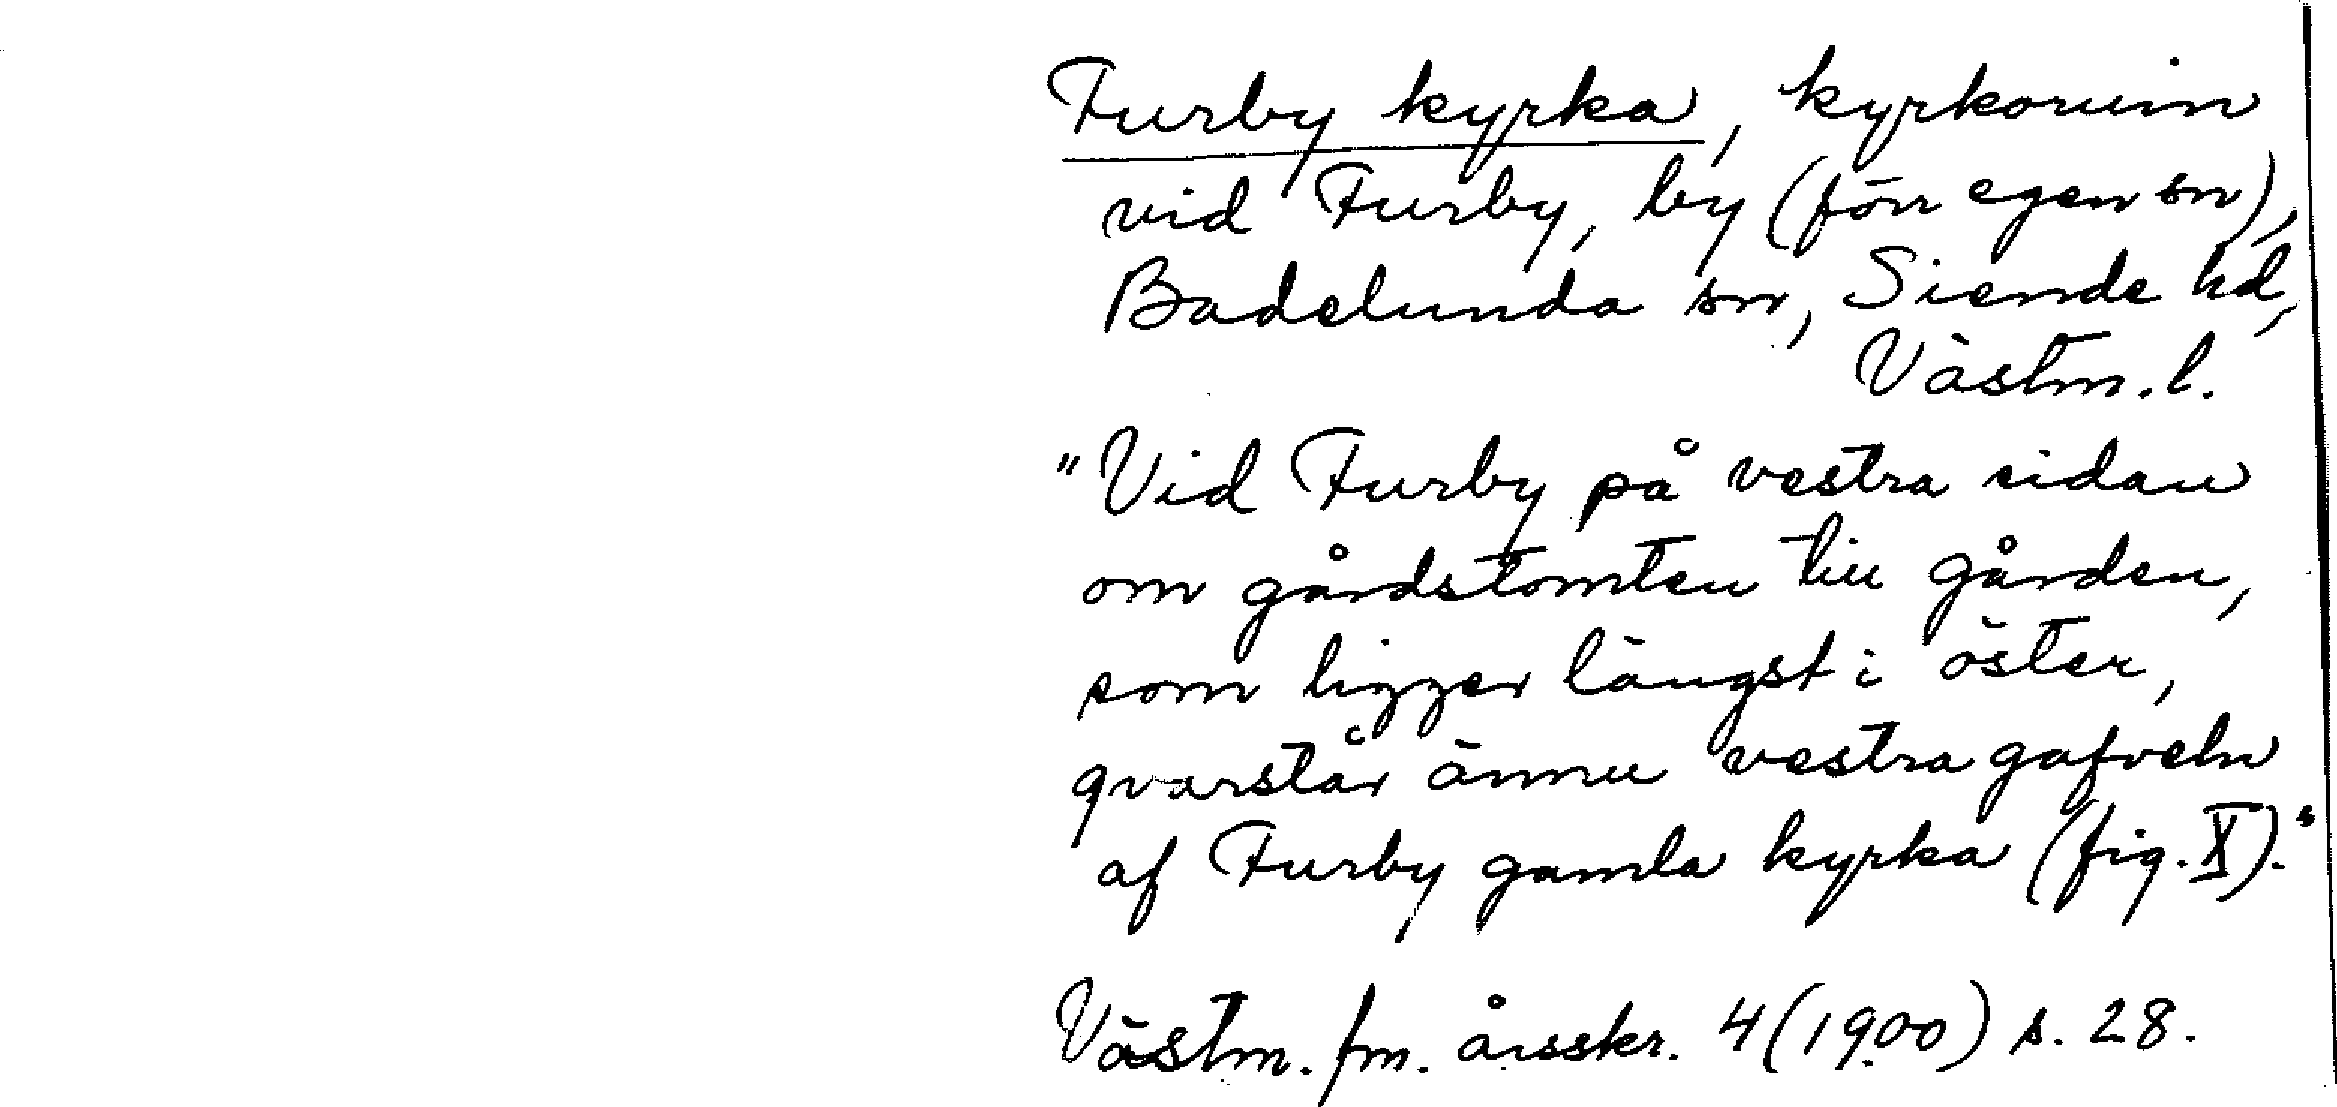 Furby kyrka, kyrkoruin
vid Furby, by (förr egen sn),
Badelunda sn, Siende hd,
Västm. l.
"Vid Furby på vestra sidan
om gårdstomten till gården,
som ligger längst i öster,
qvarstår ännu vestra gafveln
af Furby gamla kyrka (fig. X)."
Västm. fm. årsskr. 4 (1900) s. 28.